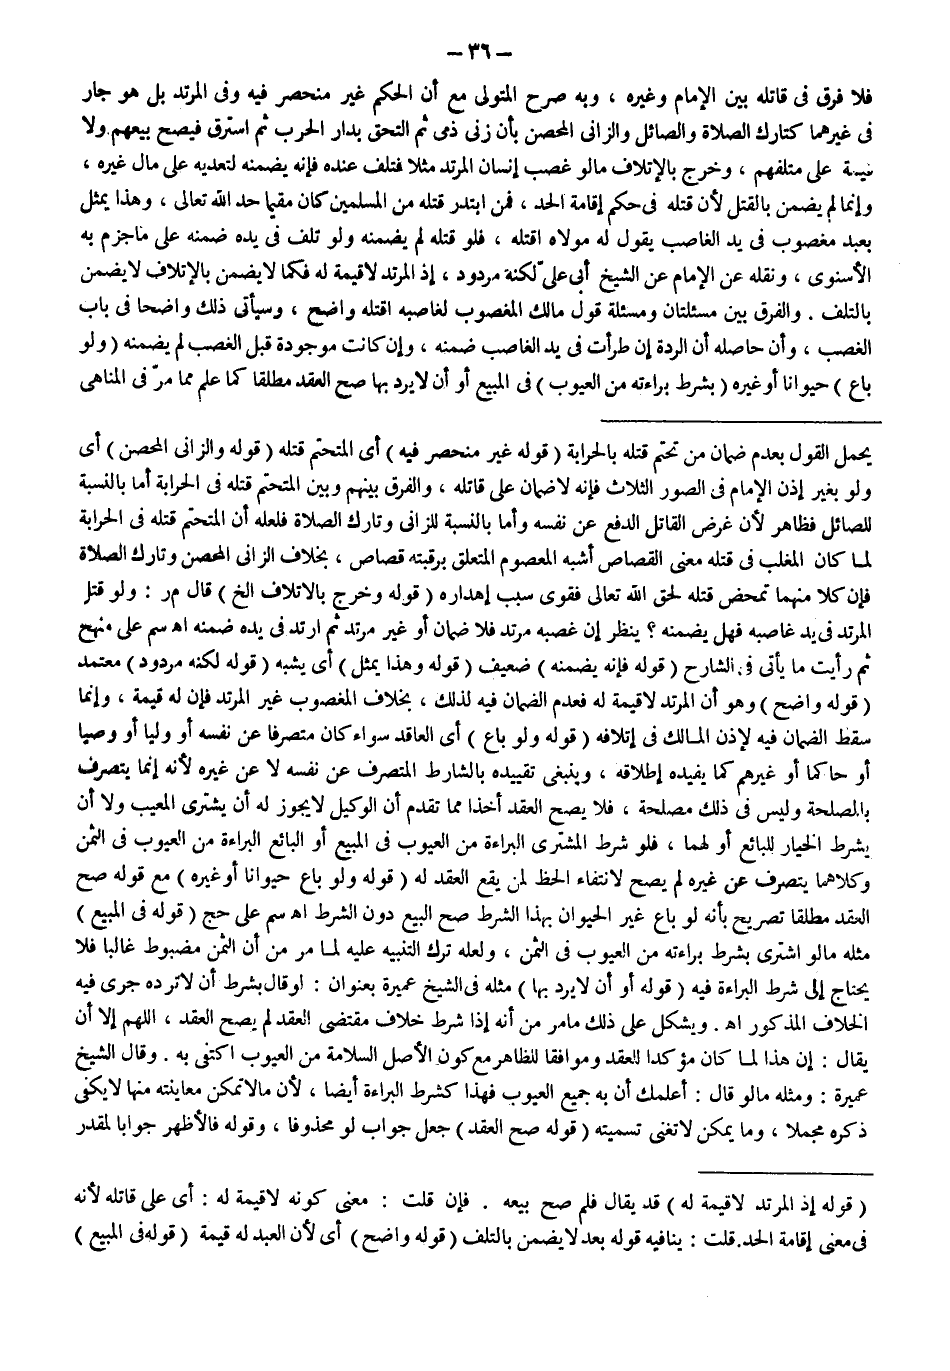 – ٣٦ –
فلا فرق فى قاتله بين الإمام وغيره ، وبه صرح المتولى مع أن الحكم غير منحصر فيه وفى المرتد بل هو جار
فى غيرهما كتارك الصلاة والصائل والزانى المحصن بأن زنى ذمى ثم التحق بدار الحرب ثم استرق فيصح بيعهم.ولا
قيمة على متلفهم ، وخرج بالإتلاف مالو غصب إنسان المرتد مثلا فتلف عنده فإنه يضمنه لتعديه على مال غيره ،
وإنما لم يضمن بالقتل لأن قتله فى حكم إقامة الحد ، فمن ابتدر قتله من المسلمين كان مقيما حد الله تعالى ، وهذا يمثل
بعبد مغصوب فى يد الغاصب يقول له مولاه اقتله ، فلو قتله لم يضمنه ولو تلف فى يده ضمنه على ماجزم به
الأسنوى ، ونقله عن الإمام عن الشيخ أبى علىّ لكنه مردود ، إذ المرتد لاقيمة له فكما لايضمن بالإتلاف لايضمن
بالتلف . والفرق بين مسئلتان ومسئلة قول مالك المغصوب لغاصبه اقتله واضح ، وسيأتى ذلك واضحا فى باب
الغصب ، وأن حاصله أن الردة إن طرأت فى يد الغاصب ضمنه ، وإن كانت موجودة قبل الغصب لم يضمنه ( ولو
باع ) حيوانا أو غيره ( بشرط براءته من العيوب ) فى المبيع أو أن لايرد بها صح العقد مطلقا كما علم مما مرّ فى المناهى
يحمل القول بعدم ضمان من تحتم قتله بالحرابة ( قوله غير منحصر فيه ) أى المتحتم قتله ( قوله والزانى المحصن ) أى
ولو بغير إذن الإمام فى الصور الثلاث فإنه لاضمان على قاتله ، والفرق بينهم وبين المتحتم قتله فى الحرابة أما بالنسبة
للصائل فظاهر لأن غرض القاتل الدفع عن نفسه وأما بالنسبة للزانى وتارك الصلاة فلعله أن المتحتم قتله فى الحرابة
لما كان المغلب فى قتله معنى القصاص أشبه المعصوم المتعلق برقبته قصاص ، بخلاف الزانى المحصن وتارك الصلاة
فإن كلا منهما تمحض قتله لحق الله تعالى فقوى سبب إهداره ( قوله وخرج بالاتلاف الخ ) قال مر : ولو قتل
المرتد فى يد غاصبه فهل يضمنه ؟ ينظر إن غصبه مرتد فلا ضمان أو غير مرتد ثم ارتد فى يده ضمنه اه سم على منهج
ثم رأيت ما يأتى فى الشارح ( قوله فإنه يضمنه ) ضعيف ( قوله وهذا يمثل ) أى يشبه ( قوله لكنه مردود ) معتمد
( قوله واضح ) وهو أن المرتد لاقيمة له فعدم الضمان فيه لذلك ، بخلاف المغصوب غير المرتد فإن له قيمة ، وإنما
سقط الضمان فيه لإذن المالك فى إتلافه ( قوله ولو باع ) أى العاقد سواء كان متصرفا عن نفسه أو وليا أو وصيا
أو حاكما أو غيرهم كما يفيده إطلاقه ، وينبغى تقييده بالشارط المتصرف عن نفسه لا عن غيره لأنه إنما يتصرف
بالمصلحة وليس فى ذلك مصلحة ، فلا يصح العقد أخذا مما تقدم أن الوكيل لايجوز له أن يشترى المعيب ولا أن
يشرط الخيار للبائع أو لهما ، فلو شرط المشترى البراءة من العيوب فى المبيع أو البائع البراءة من العيوب فى الثمن
وكلاهما يتصرف عن غيره لم يصح لانتفاء الحظ لمن يقع العقد له ( قوله ولو باع حيوانا أوغيره ) مع قوله صح
العقد مطلقا تصريح بأنه لو باع غير الحيوان بهذا الشرط صح البيع دون الشرط اه سم على حج ( قوله فى المبيع )
مثله مالو اشترى بشرط براءته من العيوب فى الثمن ، ولعله ترك التنبيه عليه لما مر من أن الثمن مضبوط غالبا فلا
يحتاج إلى شرط البراءة فيه ( قوله أو أن لايرد بها ) مثله فى الشيخ عميرة بعنوان : اوقال بشرط أن لاترده جرى فيه
الخلاف المذكور اه . ويشكل على ذلك مامر من أنه إذا شرط خلاف مقتضى العقد لم يصح العقد ، اللهم إلا أن
يقال : إن هذا لما كان مؤكدا للعقد وموافقا للظاهر مع كون الأصل السلامة من العيوب اكتفى به . وقال الشيخ
عميرة : ومثله مالو قال : أعلمك أن به جميع العيوب فهذا كشرط البراءة أيضا ، لأن مالاتمكن معاينته منها لايكفى
ذكره مجملا ، وما يمكن لاتغنى تسميته ( قوله صح العقد ) جعل جواب لو محذوفا ، وقوله فالأظهر جوابا لمقدر
( قوله إذ المرتد لاقيمة له ) قد يقال فلم صح بيعه . فإن قلت : معنى كونه لاقيمة له : أى على قاتله لأنه
فى معنى إقامة الحد.قلت : ينافيه قوله بعد لايضمن بالتلف ( قوله واضح ) أى لأن العبد له قيمة ( قوله فى المبيع )